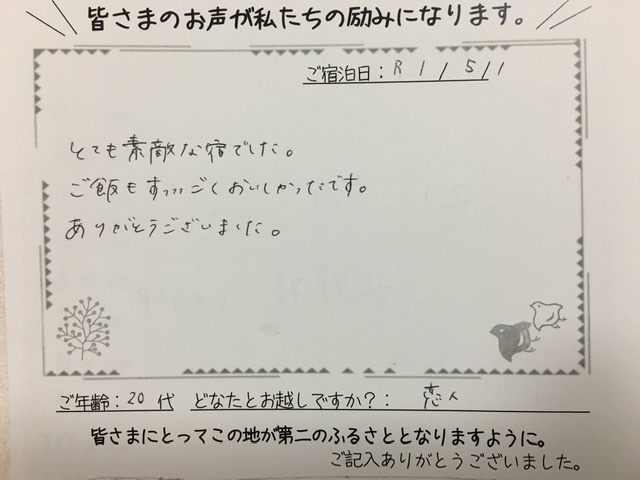 皆さまのお声が私たちの励みになります。
ご宿泊日：R1/5/1
とても素敵な宿でした。
ご飯もすっっっごくおいしかったです。
ありがとうございました。
ご年齢：20代 どなたとお越しですか？：恋人
皆さまにとってこの地が第二のふるさととなりますように。
ご記入ありがとうございました。